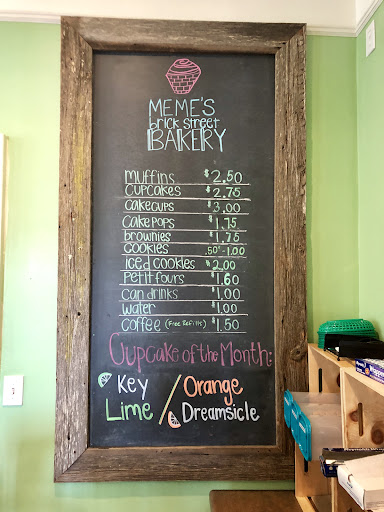 MEME'S
brick street
BAKERY
muffins $2.50
cupcakes $2.75
cakecups $3.00
cakepops $1.75
brownies $1.75
cookies .50¢-1.00
iced cookies $2.00
petit fours $1.60
can drinks $1.00
water $1.00
coffee (Free Refills) $1.50
Cupcake of the Month:
Key Lime / Orange Dreamsicle